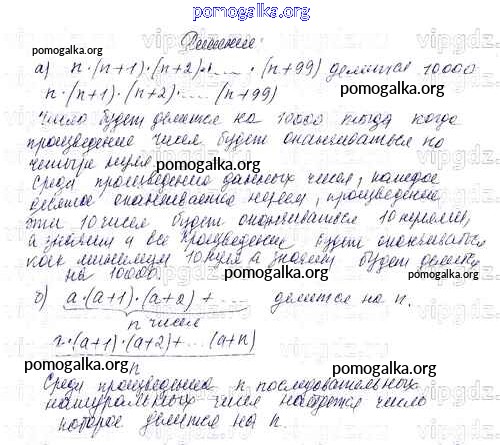 pomogalka.org
Решение:
pomogalka.org
а) n·(n+1)·(n+2)·... ·(n+99) делится 10000
n·(n+1)·(n+2)·... (n+99)
pomogalka.org
Число будет делится на 10000 тогда когда
произведение чисел будет оканчиваться на
четыре нуля
pomogalka.org
Среди произведения данных чисел, каждое
десятое оканчивается нулем, произведение
эти 10 чисел будет оканчиваться 10 нулями,
а значит и все произведение будет оканчиваться
как минимум 10 нул а значит будет делится
на 10000.
pomogalka.org
б) a·(a+1)·(a+2)+ .... делится на n.
n чисел
pomogalka.org
·(a+1)·(a+2)+...(a+n)
n
pomogalka.org
pomogalka.org
Среди произведения n последовательных
натуральных чисел найдется число
которое делится на n.
pomogalka.org